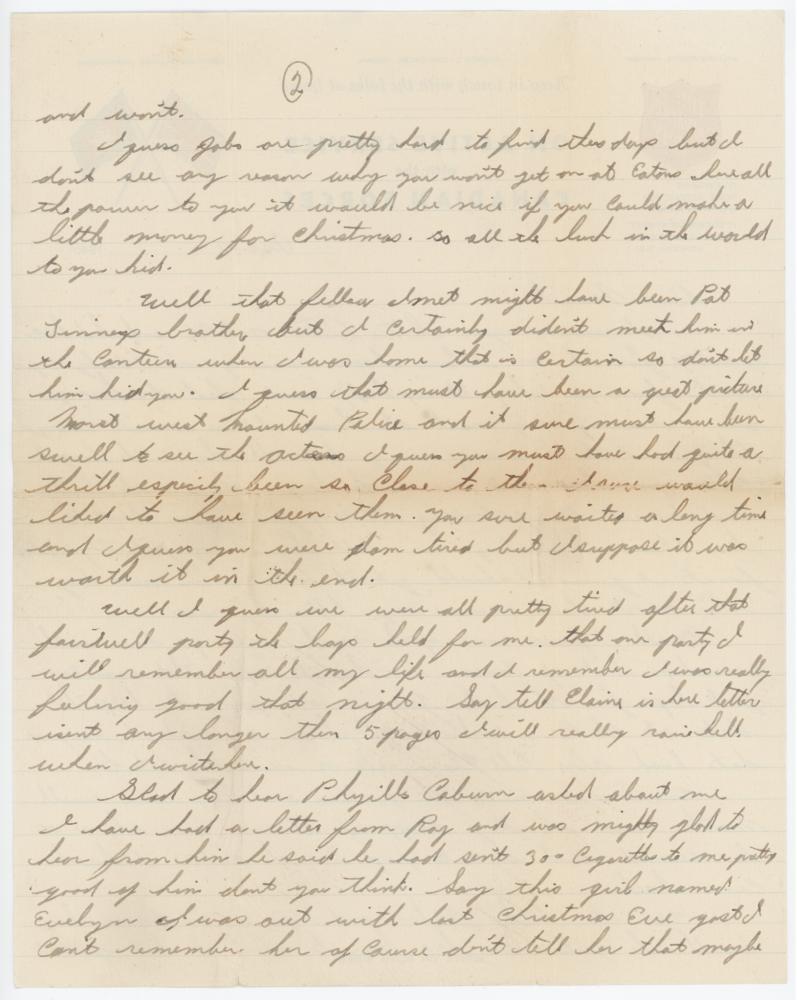 2
and won't.
I guess Jobs are pretty hard to find thes days but I
don't see any reason why you won't get on at Eatons here all
the power to you it would be nice if you could make a
little money for Christmas. so all the luck in the world
to you kid.
Well that fellow I met might have been Pat
brother but I certainly did'ent meet him in
the Canteen when I was home that is certain so don't let
him kid you. I guess that must have been a great picture
North west Mounted Police and it sure must have been
swell to see the actess I guess you must have had quite a
thrill especily been so close to the would
liked to have seen them. You sure waited a long time
and I guess you were dam tired but I suppose it was
worth it in the end.
Well I guess we were all pretty tired after that
fairwell party the boys held for me. that one party I
will remember all my life and I remember I was really
feeling good that night. Say tell Claire is here letter
isent any longer then 5 pages I will really raise hell.
when I write her.
Glad to hear Phyills Coburn asked about me
I have had a letter from Ray and was mighty glad to
hear from him he said he had sent 300 Cigarettes to me pretty
good of him dont you think. Say this girl named
Evelyn I was out with last Christmas Eve gosh I
Can't remember her of course don't tell her that maybe